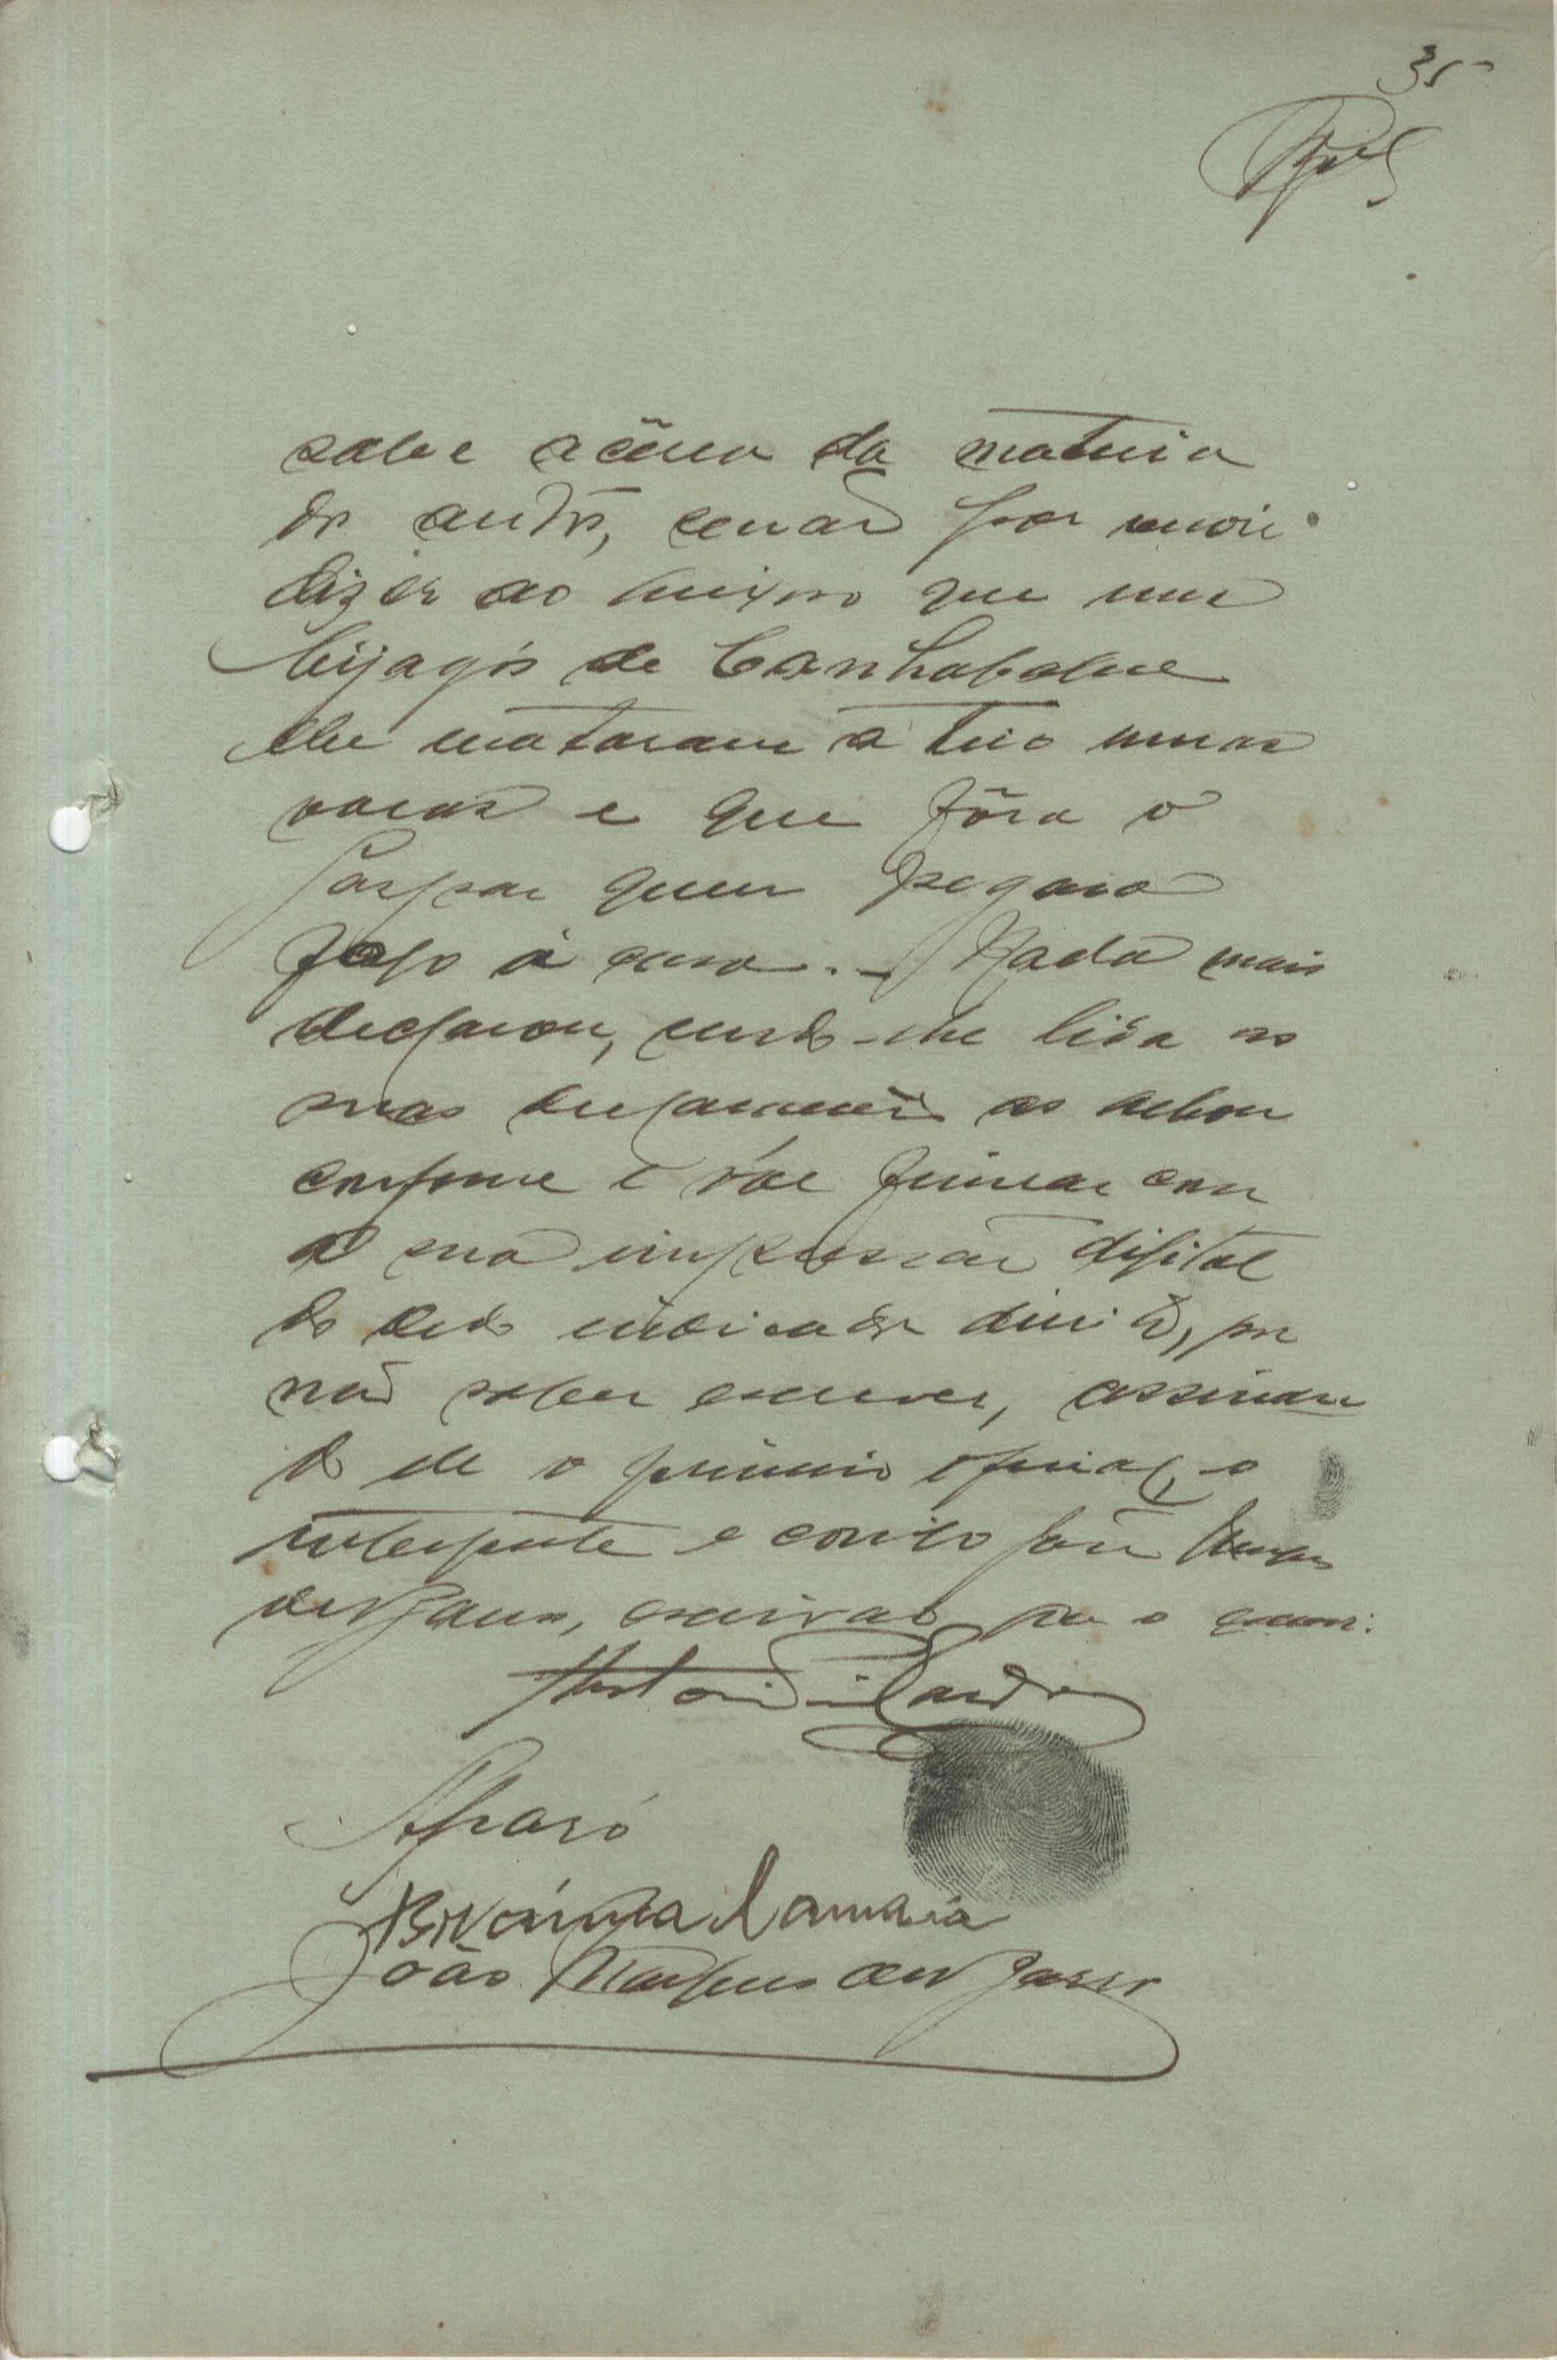 35
sabe acêrca da materia
do autos, senão por ouvir
dizer ao mesmo que uns
bijagós de Canhabaque
lhe mataram a tiro umas
vacas e que fôra o
Gaspar quem pegara
fogo á casa. - Nada mais
declarou, sendo-lhe lida as
suas declarações as achou
conforme e vae firmar com
a sua impressão digital
do dedo indicador direito, por
não saber escrever, assinan
do ele o primeiro oficial, o
interprete e comigo João
escrivão que o escrevi.
João